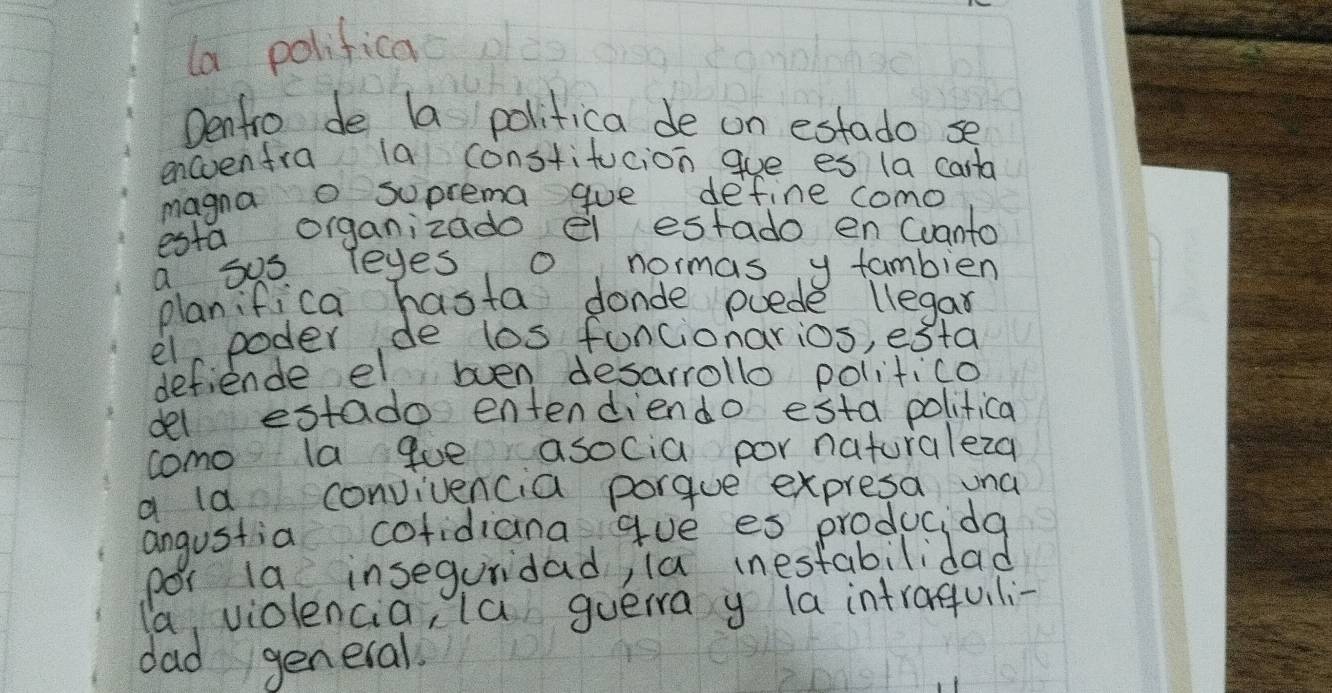 la politica
Dentro de la politica de un estado se
encuentra la constitución que es la carta
magna o suprema que define como
esta organizado el estado en cuanto
a sus leyes, o normas y tambien
planifica hasta donde puede llegar
el poder de los funcionarios, esta
defiende el buen desarrollo politico
del estado entendiendo esta politica
como la que asocia por naturaleza
a la convivencia porque expresa una
angustia cotidiana que es producida
por la inseguridad, la inestabilidad
la violencia, la guerra y la intranquili-
dad general.